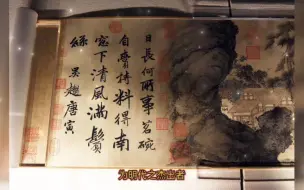 日長何所事茗碗
自賫持料得南
窓下清風滿鬢
絲 吳趨唐寅
为明代之杰出者